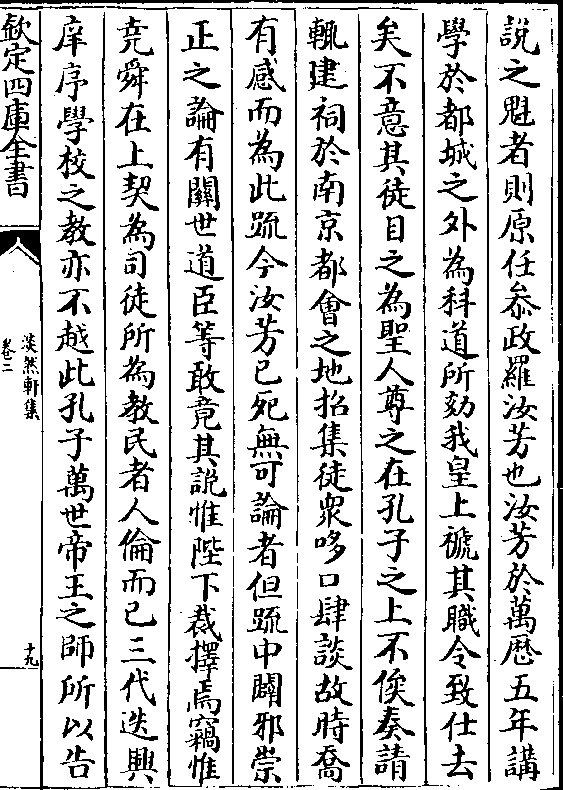 說之魁者則原任叅政羅汝芳也汝芳於萬厯五年講
學於都城之外為科道所劾我皇上褫其職令致仕去
矣不意其徒目之為聖人尊之在孔子之上不俟奏請
輒建祠於南京都會之地招集徒衆哆口肆談故時喬
有感而為此䟽今汝芳已死無可論者但䟽中闢邪崇
正之論有關世道臣等敢竟其說惟陛下裁擇焉竊惟
堯舜在上契為司徒所為教民者人倫而已三代迭興
庠序學校之教亦不越此孔子萬世帝王之師所以告
欽定四庫全書
淡然軒集
卷二
十九